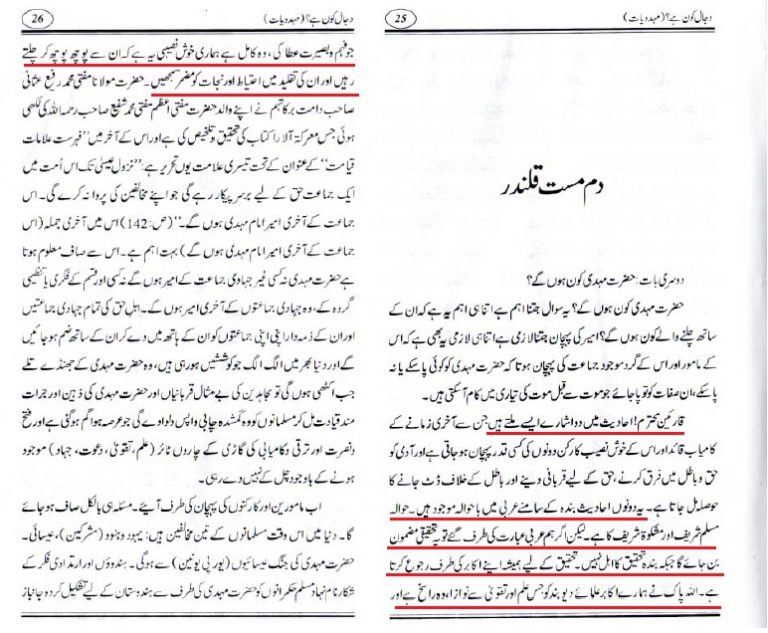 دجال کون ہے؟ (مہدویات)
25
دم مست قلندر
دوسری بات: حضرت مہدی کون ہوں گے؟
حضرت مہدی کون ہوں گے؟ یہ سوال جتنا اہم ہے اتنا ہی اہم یہ ہے کہ ان کے
ساتھ چلنے والے کون ہوں گے؟ امیر کی پہچان جتنا لازمی ہے اتنا ہی لازمی یہ بھی ہے کہ اس
کے مامور اور اس کے گرد موجود جماعت کی پہچان ہوتا کہ حضرت مہدی کو کوئی پا سکے یا نہ
پا سکے، ان صفات کو تو پا جائے جو موت سے قبل موت کی تیاری میں کام آسکتی ہیں۔
قارئین محترم! احادیث میں دو اشارے ایسے ملتے ہیں جن سے آخری زمانے کے
کامیاب قائد اور اس کے خوش نصیب کارکن دونوں کی کسی قدر پہچان ہو جاتی ہے اور آدمی کو
حق و باطل میں فرق کرنے، حق کے لیے قربانی دینے اور باطل کے خلاف ڈٹ جانے کا
حوصلہ مل جاتا ہے۔ یہ دونوں احادیث بندہ کے سامنے عربی میں باحوالہ موجود ہیں۔ حوالہ
مسلم شریف اور مشکوۃ شریف کا ہے۔ لیکن اگر ہم عربی عبارت کی طرف گئے تو یہ تحقیقی مضمون
بن جائے گا جبکہ بندہ تحقیق کا اہل نہیں۔ تحقیق کے لیے ہمیشہ اپنے اکابر کی طرف رجوع کرتا
ہے۔ اللہ پاک نے ہمارے اکابر علمائے دیوبند کو جس علم اور تقویٰ سے نوازا، وہ راسخ ہے اور
دجال کون ہے؟ (مہدویات)
26
جو فہم و بصیرت عطا کی، وہ کامل ہے ہماری خوش نصیبی یہ ہے کہ ان سے پوچھ پوچھ کر چلتے
رہیں اور ان کی تقلید میں احتیاط اور نجات کو مضمر سمجھیں۔ حضرت مولانا مفتی محمد رفیع عثمانی
صاحب دامت برکاتہم نے اپنے والد حضرت مفتی اعظم مفتی محمد شفیع صاحب رحمہ اللہ کی لکھی
ہوئی جس معرکۃ الآرا کتاب کی تحقیق و تلخیص کی ہے اور اس کے آخر میں "فہرست علامات
قیامت" کے عنوان کے تحت تیسری علامت یوں تحریر ہے: "نزول عیسیٰ تک اس اُمت میں
ایک جماعت حق کے لیے برسر پیکار رہے گی جو اپنے مخالفین کی پروا نہ کرے گی۔ اس
جماعت کے آخری امیر امام مہدی ہوں گے۔" (ص:142) اس میں آخری جملہ (اس
جماعت کے آخری امیر امام مہدی ہوں گے) بہت اہم ہے۔ اس سے صاف معلوم ہوتا
ہے حضرت مہدی نہ کسی غیر جہادی جماعت کے امیر ہوں گے نہ کسی اور قسم کے فکری یا تنظیمی
گروہ کے، وہ جہادی جماعتوں کے آخری امیر ہوں گے۔ اہل حق کی تمام جہادی جماعتیں
اور ان کے ذمہ دار اپنی اپنی جماعتوں کو ان کے ہاتھ میں دے کر ان کے ساتھ ضم ہو جائیں
گے اور دنیا بھر میں الگ الگ جو کوششیں ہو رہی ہیں، وہ حضرت مہدی کے جھنڈے تلے
جب اکٹھی ہوں گی تو مجاہدین کی بے مثال قربانیاں اور حضرت مہدی کی ذہین اور جرات
مند قیادت مل کر مسلمانوں کو وہ گمشدہ چابی واپس دلوا دے گی جو عرصہ ہوا گم ہو گئی ہے اور فتح
و نصرت اور ترقی و کامیابی کی گاڑی کے چاروں ٹائر (علم، تقویٰ، دعوت، جہاد) موجود
ہونے کے باوجود چل کے نہیں دے رہی۔
اب مامورین اور کارکنوں کی پہچان کی طرف آیئے۔ مسئلہ ہی بالکل صاف ہو جائے
گا۔ دنیا میں اس وقت مسلمانوں کے تین مخالفین ہیں: یہود و ہنود (مشرکین)، عیسائی۔
حضرت مہدی کی جنگ عیسائیوں (یورپی یونین) سے ہوگی۔ ہندوؤں اور ارتدادی فکر کے
شکار نام نہاد مسلم حکمرانوں کو حضرت مہدی کی طرف سے ہندوستان کے لیے تشکیل کردہ جانباز